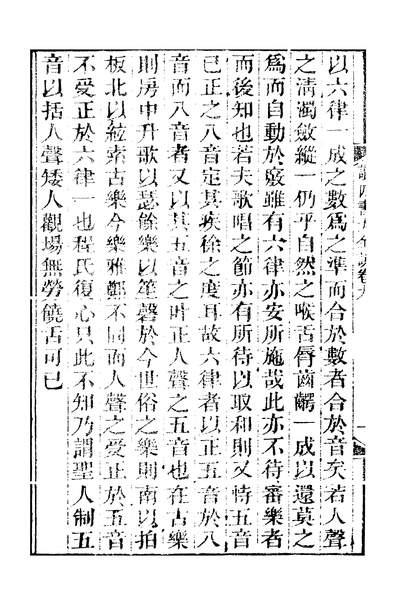 讀四書大全說卷九
以六律一成之數爲之準而合於數者合於音矣若人聲
之清濁斂縱一仍乎自然之喉舌脣齒齶一成以還莫之
爲而自動於竅雖有六律亦安所施哉此亦不待審樂者
而後知也若夫歌唱之節亦有所待以取和則又恃五音
已正之八音定其疾徐之度耳故六律者以正五音於八
音而八音者又以其五音之叶正人聲之五音也在古樂
則房中升歌以瑟餘樂以笙磬於今世俗之樂則南以拍
板北以絃索古樂今樂雅鄭不同而人聲之受正於五音
不受正於六律一也程氏復心只此不知乃謂聖人制五
音以括人聲矮人觀場無勞饒舌可已